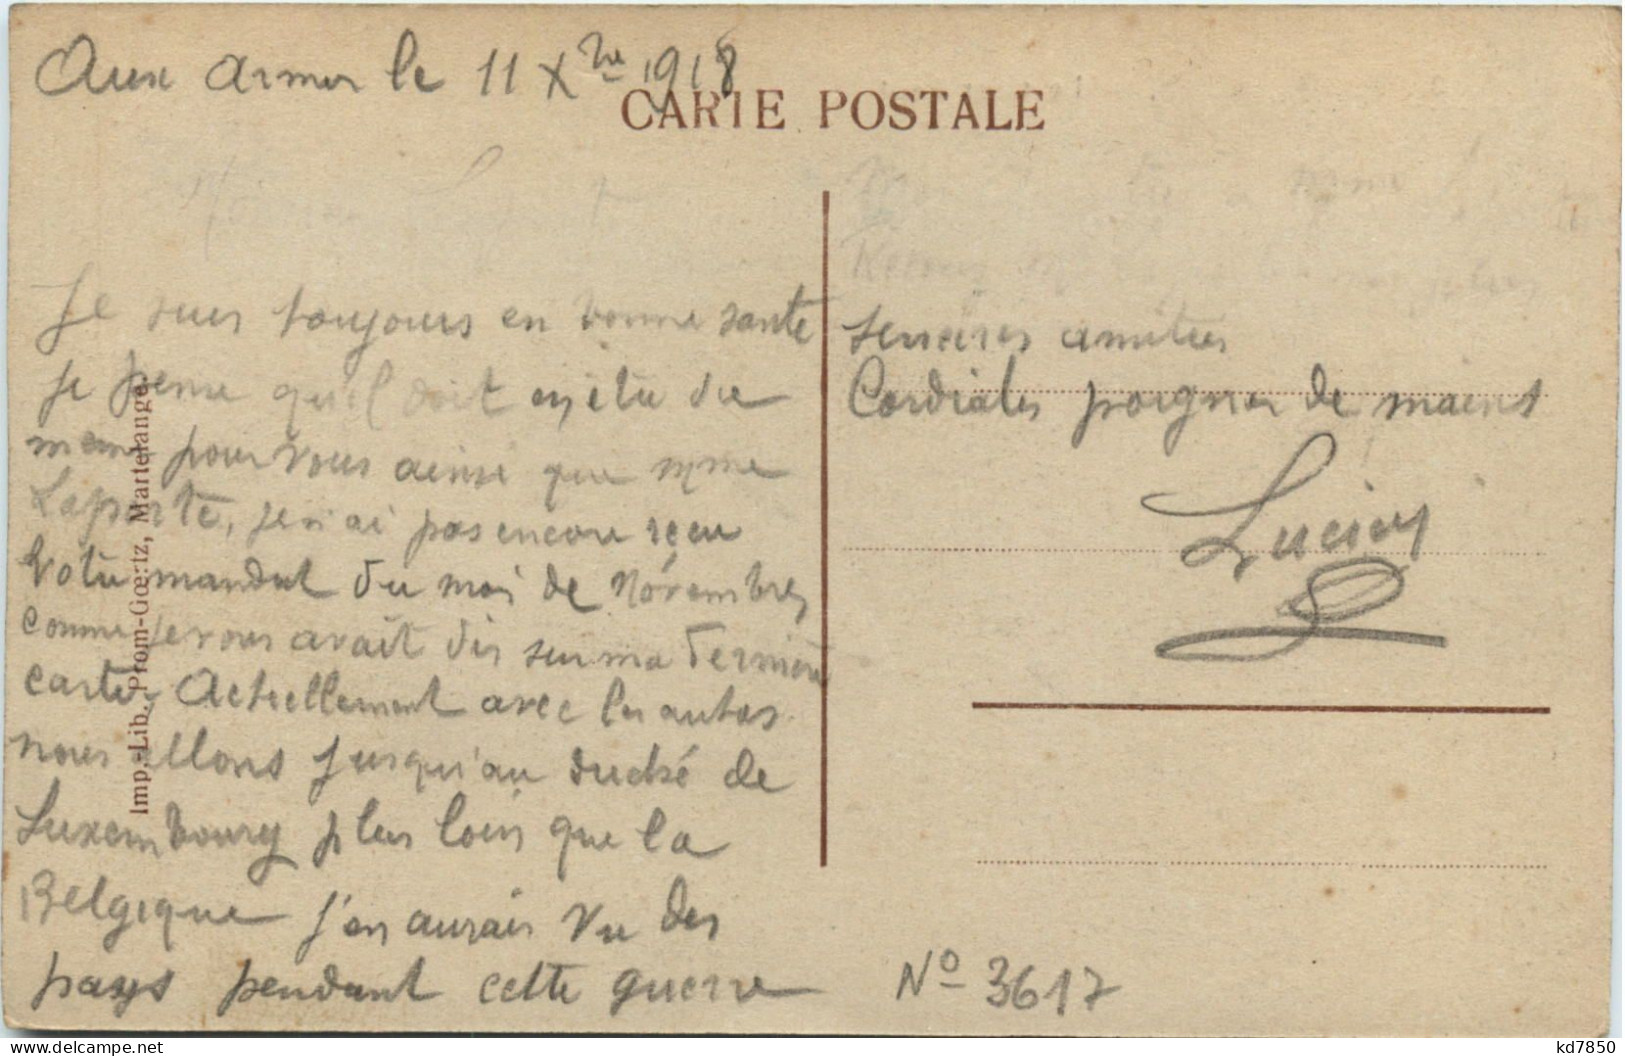 Aux armes le 11 Xbre 1918
CARTE POSTALE
Monsieur Laporte
Je suis toujours en bonne santé
je pense qu'il doit en être de
meme pour vous ainsi que Mme
Laporte, je n'ai pas encore reçu
votre mandat du moi de Novembre,
comme je vous avait dis sur ma derniere
carte, Actuellement avec les autos
nous allons jusqu'au duché de
Luxembourg plus loin que la
Belgique j'en aurais vu des
pays pendant cette guerre
Mme
Recevez mes plus
sincères amitiés
Cordiales poignes de mains
Lucien
N° 3617
Imp.-Lib. Prom-Gœrtz, Martelange
kd7850